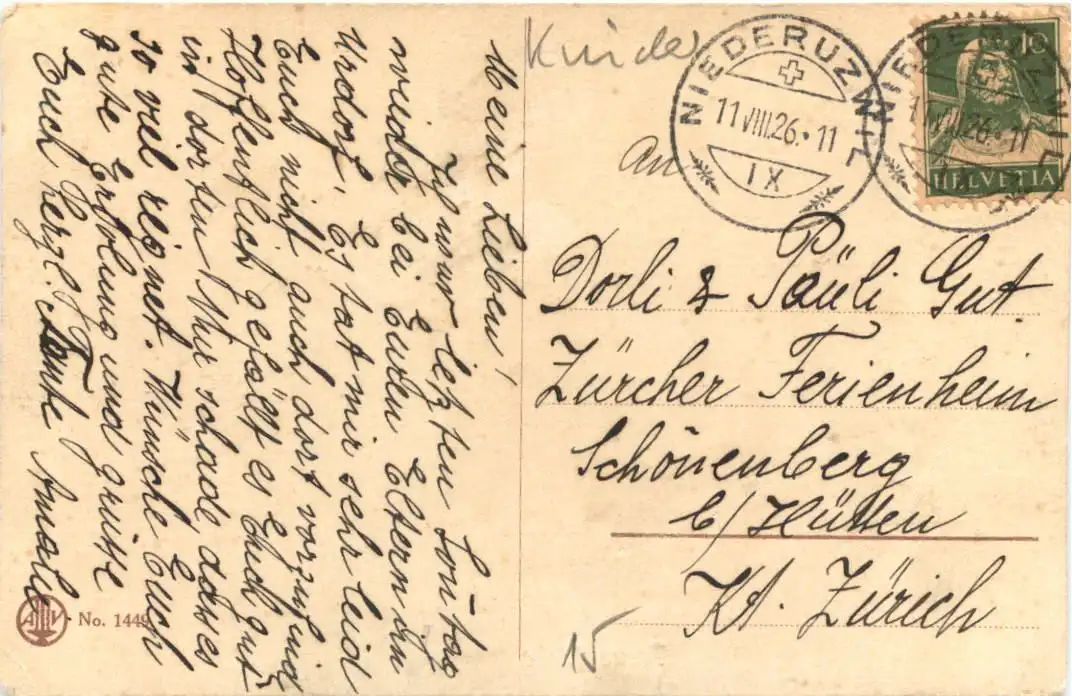 Meine Lieben!
Ich war letzten Sontag
wieder bei Euren Eltern in
Urdorf. Es tat mir sehr leid
Euch nicht auch dort vorzufinden
Hoffentlich gefällt es Euch gut
in dorten Nur schade dass es
so viel regnet. Wünsche Euch
gute Erholung und grüsse
Euch herzl. Tante Amalie
No. 1449
Kinder
NIEDERUZWIL
11 VIII.26.-11
IX
NIEDERUZWIL
10
HELVETIA
An
Dorli & Päuli Gut.
Zürcher Ferienheim
Schönenberg
b/Hütten
Kt. Zürich
15